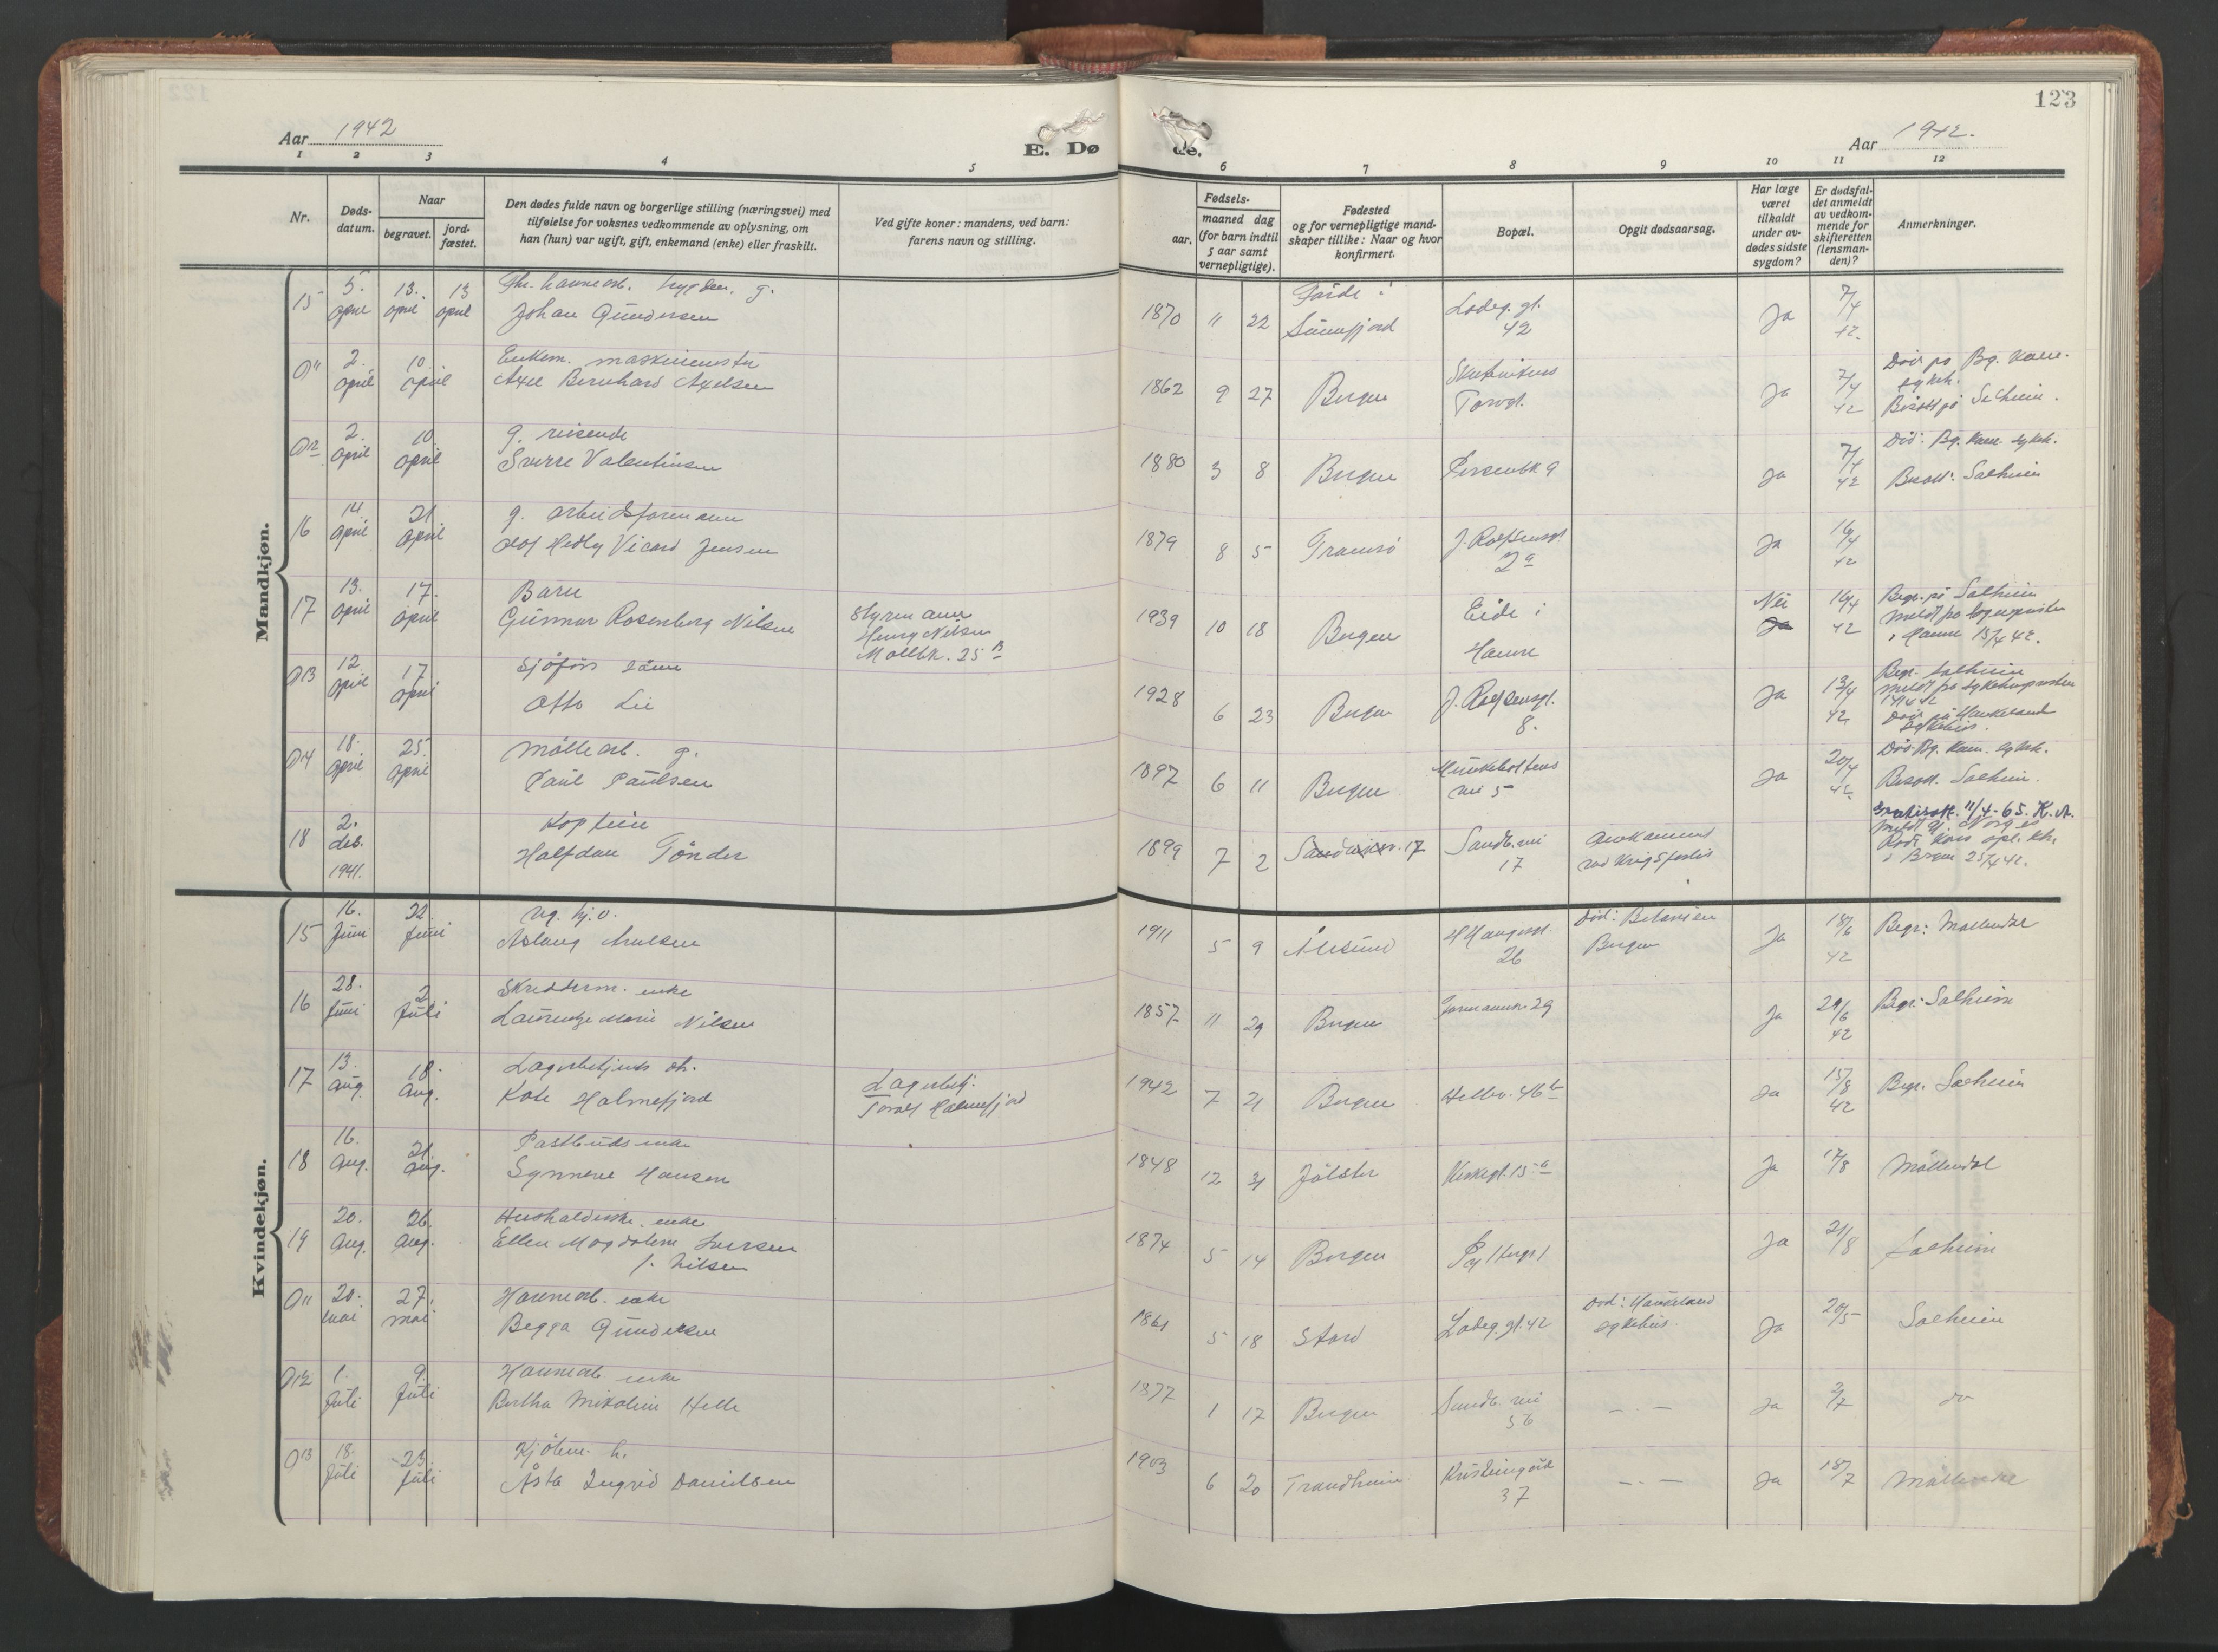 123
Aar 1942
E. Dø
de.
Aar 1942.
1 2 3 4 5 6 7 8 9 10 11 12
Nr.
Døds-
datum.
Naar
begravet.
jord-
fæstet.
Den dødes fulde navn og borgerlige stilling (næringsvei) med
tilføielse for voksnes vedkommende av oplysning, om
han (hun) var ugift, gift, enkemand (enke) eller fraskilt.
Ved gifte koner: mandens, ved barn:
farens navn og stilling.
Fødsels-
aar.
maaned dag
(for barn indtil
5 aar samt
vernepligtige).
Fødested
og for vernepligtige mand-
skaper tillike: Naar og hvor
konfirmert.
Bopæl.
Opgit dødsaarsag.
Har læge
været
tilkaldt
under av-
dødes sidste
sygdom?
Er dødsfal-
det anmeldt
av vedkom-
mende for
skifteretten
(lensman-
den)?
Anmerkninger.
Mandkjøn.
15 5. april 13. april 13 april
fhv. havnearb. g.
Johan Gundersen
1870 11 22 Førde i
Sunnfjord
Ladeg. gt.
42
Ja 7/4 42.
O11 2. april 10. april
Enkem. maskinmester
Axel Bernhard Axelsen
1862 9 27 Bergen
Skuteviks
Torvgt.
Ja 7/4 42
Død på Bg. Kom.
sykeh.
Bisatt på Solheim.
O12 2. april 10. april
g. reisende
Sverre Valentinsen
1880 3 8 Bergen Persenbk 9
Ja 7/4 42
Død: Bg. Kom. sykeh.
Bisatt: Solheim
16 14. april 21. april
g. arbeidsformann
Olof Hedly Vicard Jensen
1879 8 5 Tromsø J. Rolfsensgt
2a
Ja 16/4 42
17 13. april 17. april
Barn
Gunnar Rosenberg Nilsen
Styrmann
Henry Nilsen
Møllbk. 25 B
1939 10 18 Bergen
Eide i
Hamre
Nei
Ja
16/4 42
Begr. på Solheim
meldt fra sognepresten
i Hamre 15/4 42.
O13 12. april 17 april
Sjåførs sønn
Otto Lie
1928 6 23 Bergen J. Rolfsensgt.
8.
Ja 13/4 42
Begr. Solheim
meldt fra sykehuspresten
14/4 42
Død på Haukeland
sykehus.
O14 18. april 25. april
Møllearb. g.
Paul Paulsen
1897 6 11 Bergen
Munkebottens
vei 5
Ja 20/4 42
Død: Bg. Kom. sykeh.
Bisatt. Solheim.
18 2. des. 1941.
Kaptein
Halfdan Tønder
1899 7 2 Sandviksv. 17
Sandv. vei
17
Omkommet
ved krigsforlis
11/4-65. K.A.
meldt gj. Norges
Røde Kors opl. ktr.
i Bergen 25/4 42.
Kvindekjøn.
15 16. Juni 22. Juni
ug. hj.v.
Aslaug Arnlsen
1911 5 9 Ålesund
H Haugesgt
26
Død: Betanien
Bergen
Ja 18/6 42
Begr: Møllendal
16 28. Juni 2 Juli
Skredderm. enke
Laurentze Marie Nilsen
1857 11 29 Bergen Formannsv. 29
Ja 29/6 42
Begr: Solheim
17 13. aug. 18. aug.
Lagerbetjents dt.
Kate Holmefjord
Lagerbetj.
Toralf Holmefjord
1942 7 21 Bergen Hellev. 46 b
Ja 15/8 42
Begr. Solheim
18 16. aug. 21. aug.
Postbuds enke
Synneve Hansen
1848 12 31 Jølster Kirkegt. 15 a
Ja 17/8 Møllendal
19 20. aug. 26. aug.
Husholderske, enke
Ellen Magdalene Iversen
f. Nilsen
1874 5 14 Bergen
Ja 21/8 Solheim
O11 20. mai 27. mai
Havnearb. enke
Begga Gundersen
1861 5 18 Stord Ladeg. gt. 42
Død: Haukeland
sykehus.
Ja 20/5 Solheim
O12 1. Juli 9. Juli
Havnearb. enke
Bertha Mikoline Helle
1877 1 17 Bergen
Sandv. vei
56
— . —
Ja 2/7 do
O13 18. Juli 23. Juli
Kjølem. h.
Åsta Ingrid Danielsen
1903 6 20 Trondheim
37
— . —
Ja 18/7 Møllendal